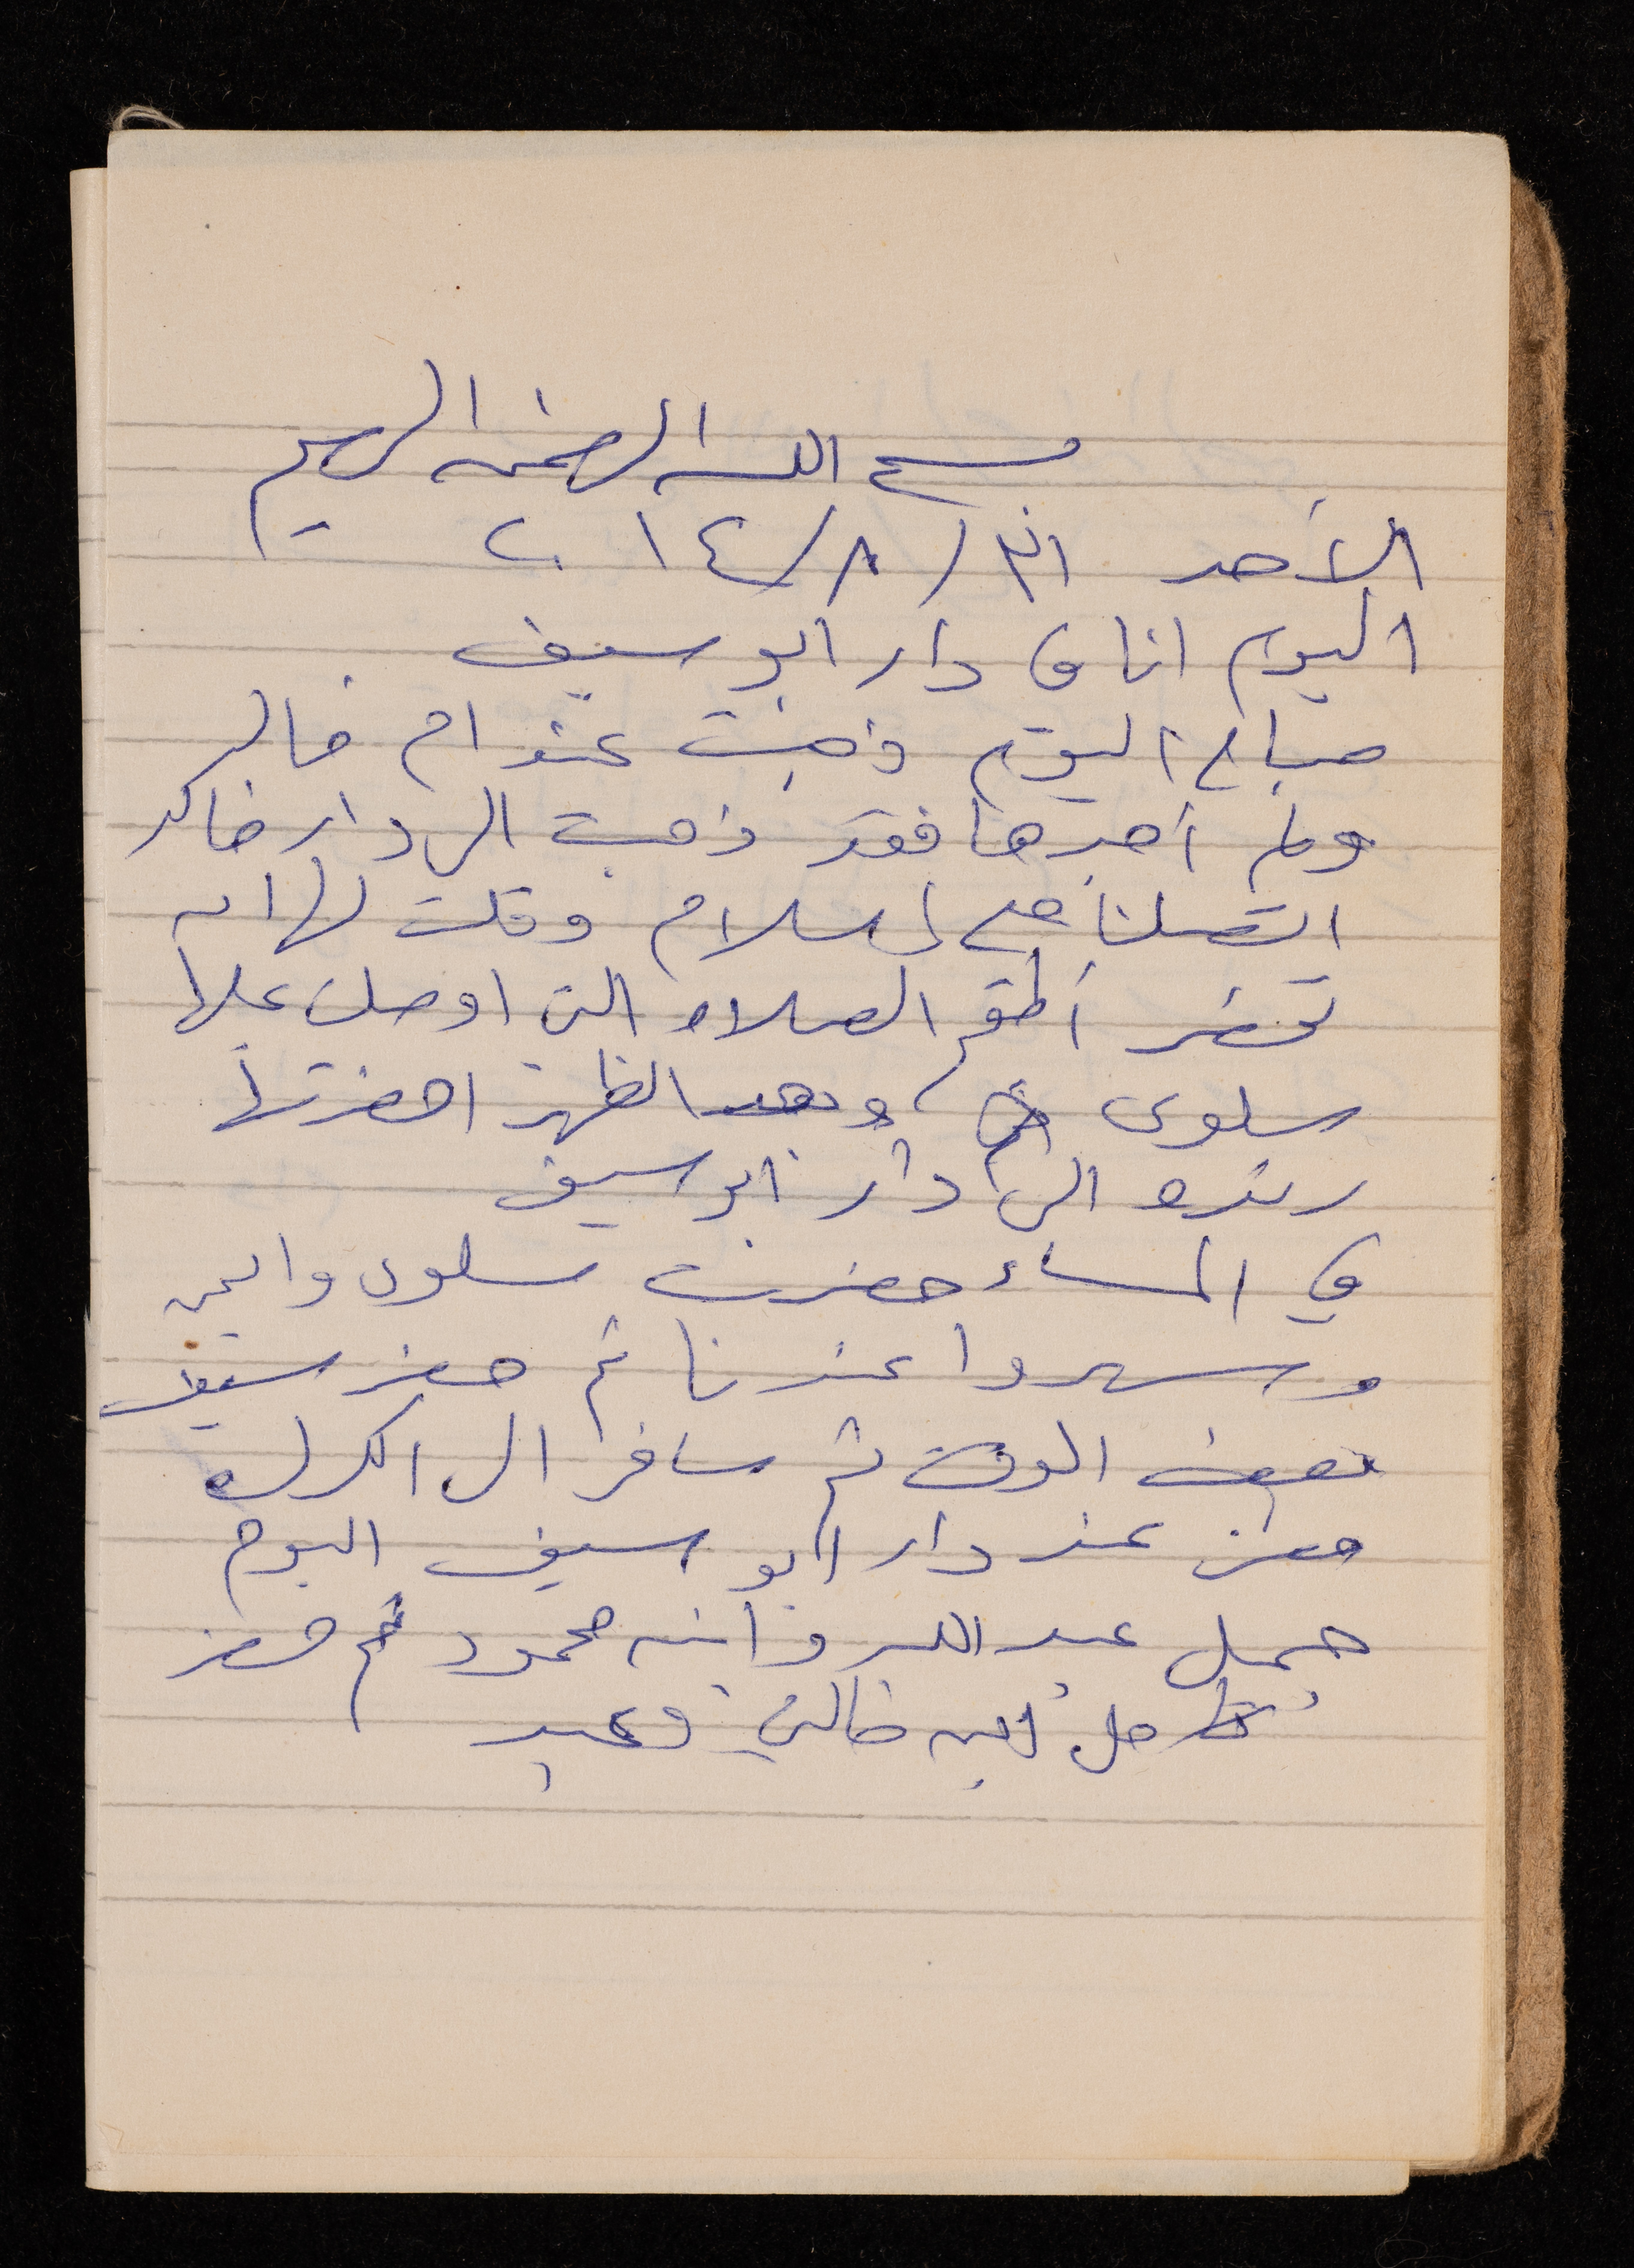 بسم الله الرحمن الرحيم
الأحد ٣١ / ٨ / ٢٠١٤
اليوم انا في دار ابو سيف
صباح اليوم ذهبت عند ام خالد
ولم أجدها فقد ذهبت الى دار خالد
اتصلنا مع اسلام وقلت لها ان
تحضر أطقم الصلاه التي اوصت عليها
سلوى وبعد الظهر احضرتها
رنده الى دار ابو سيف
في المساء حضرت سلوى وايمن
وسهروا عندنا ثم حضر سيف
بعض الوقت ثم سافر الى الكرك
حضر عند دار ابو سيف اليوم
جميل عبد الله وابنه محمود ثم حضر
ابن خالتي وعبد